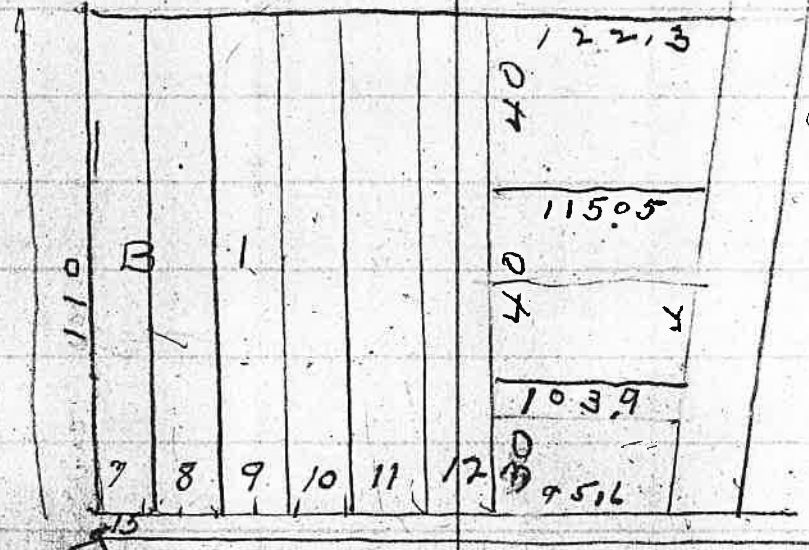 122.3
40
11505
B 1
110
40
4
103.9
7 8 9 10 11 12 30
95.6
15